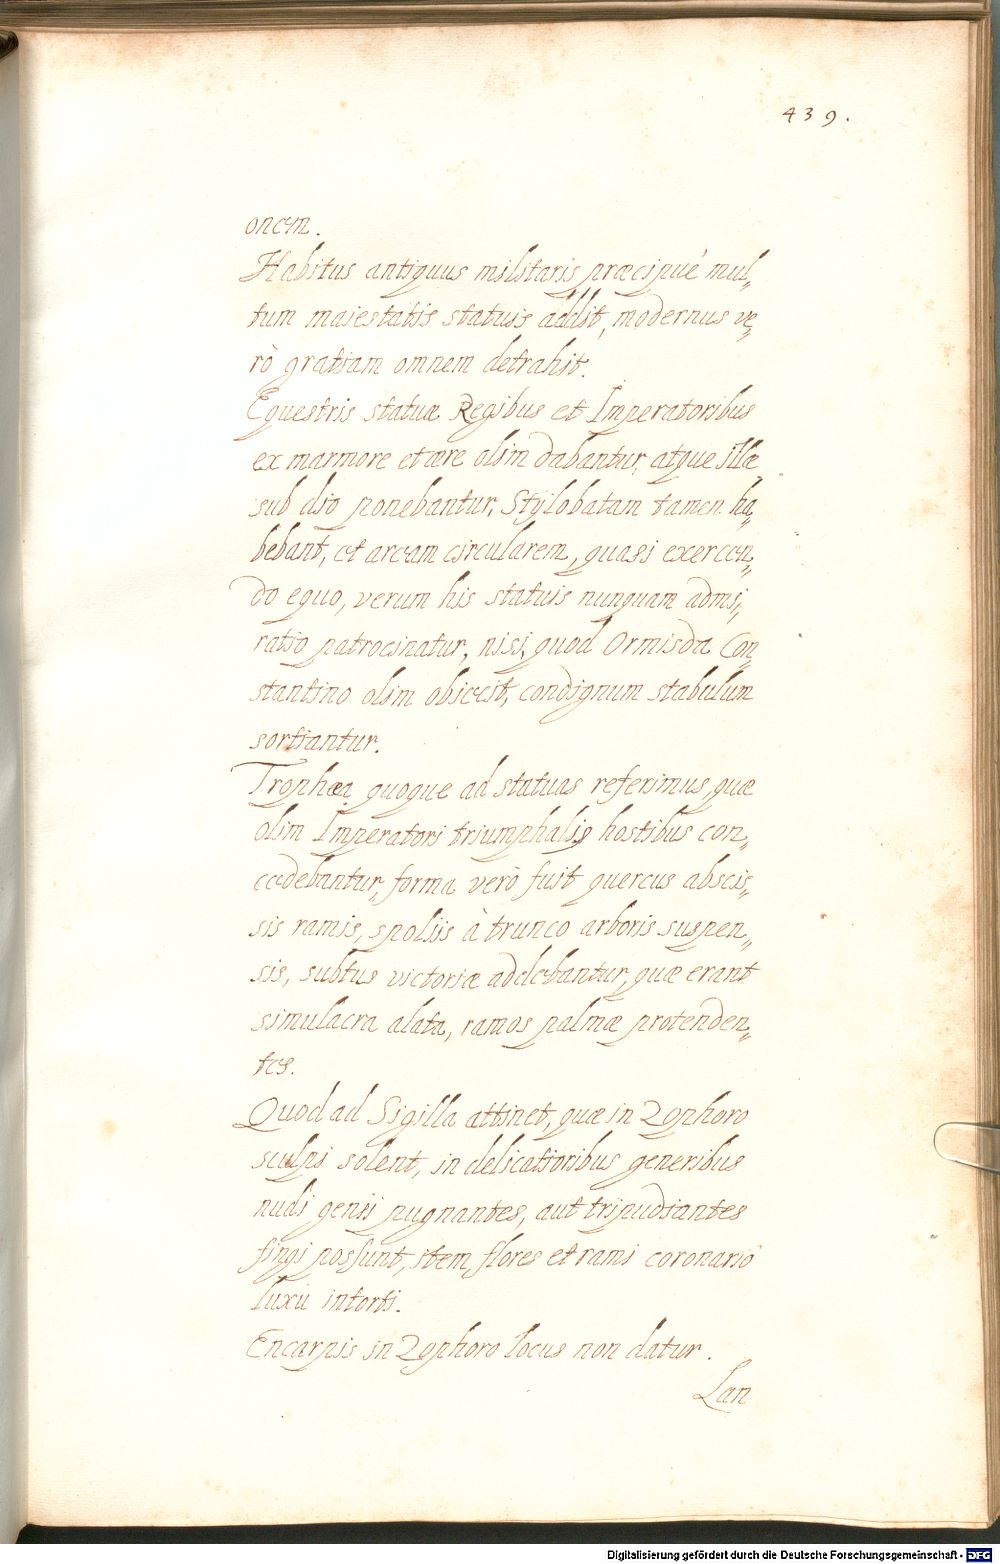 439.
onem.
Habitus antiquus militaris præcipuè mul„
tum maiestatis statuis addit, modernus ve„
rò gratiam omnem detrahit.
Equestris statuæ Regibus et Imperatoribus
ex marmore et ære olim dabantur, atque illæ
sub dio ponebantur, Stylobatam tamen ha„
bebant, et aream circularem, quasi exercen„
do equo, verum his statuis nunquam admi„
ratio patrocinatur, nisi, quod Ormisda Con„
stantino olim obiecit, condignum stabulum
sortiantur.
Trophæa quoque ad statuas referimus, quæ
olim Imperatori triumphalis hostibus con„
cædebantur, forma verò fuit quercus abscis„
sis ramis, spoliis à trunco arboris suspen„
sis, subtus victoriæ addebantur, quæ erant
simulacra alata, ramos palmæ protenden„
tes.
Quod ad Sigilla attinet, quæ in Zophoro
sculpi solent, in delicatioribus generibus
nudi genii pugnantes, aut tripudiantes
fingi possunt, item flores et rami coronario
luxu intorti.
Encarpis in Zophoro locus non datur.
Lan
Digitalisierung gefördert durch die Deutsche Forschungsgemeinschaft - DFG